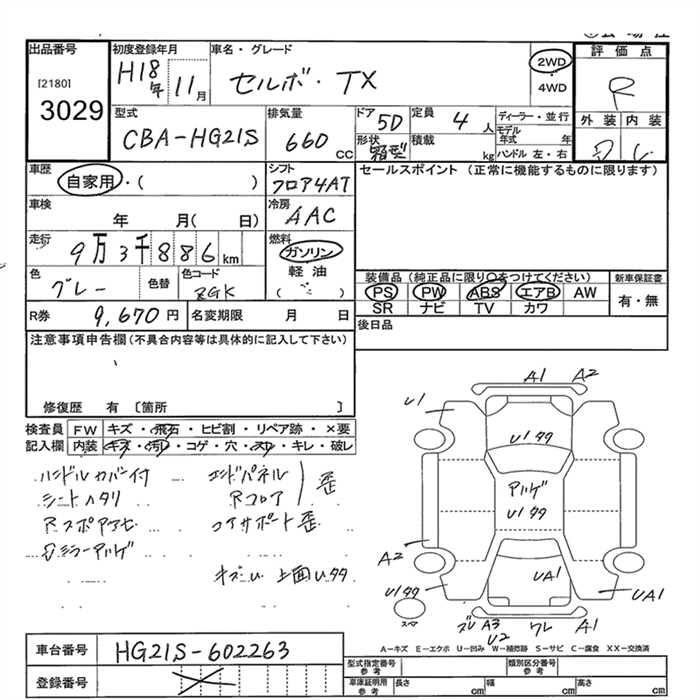 出品番号
[2180]
3029
初度登録年月
H18年 11月
車名・グレード
セルボ・TX
2WD
・
4WD
評価点
R
外装 内装
型式
CBA-HG21S
排気量
660 CC
ドア
5D
形状
箱型
定員
4 人
積載
kg
ディーラー・並行
モデル年式 年
ハンドル 左・右
車歴
自家用・( )
シフト
フロア4AT
セールスポイント (正常に機能するものに限ります)
車検
年 月( 日)
冷房
AAC
走行
9万3千886km
燃料
ガソリン
軽油
( )
色
グレー
色替
色コード
ZGK
装備品(純正品に限り○をつけてください)
PS PW ABS エアB AW
SR ナビ TV カワ
新車保証書
有・無
R券 9,670円
名変期限 月 日
後日品
注意事項申告欄(不具合内容等は具体的に記入して下さい)
修復歴 有 〔箇所 〕
検査員記入欄
FW キズ・飛石・ヒビ割・リペア跡・×要
内装 キズ・汚れ・コゲ・穴・スレ・キレ・破レ
ハンドルカバー付
シートハタリ
エンドパネル
Rフロア
歪
コアサポート歪
キズU 上面Uタタ
A1 A2
U1
U1タタ
アルゲ
U1タタ
A2
U1タタ
UA1
UA1
スペア
ズレ A3 U2 ワレ A1
A―キズ E―エクボ U―凹み W―補修跡 S―サビ C―腐食 XX―交換済
車台番号
HG21S-602263
登録番号
型式指定番号
参考
類別区分番号
参考
車庫証明用
参考
長さ cm
幅 cm
高さ cm